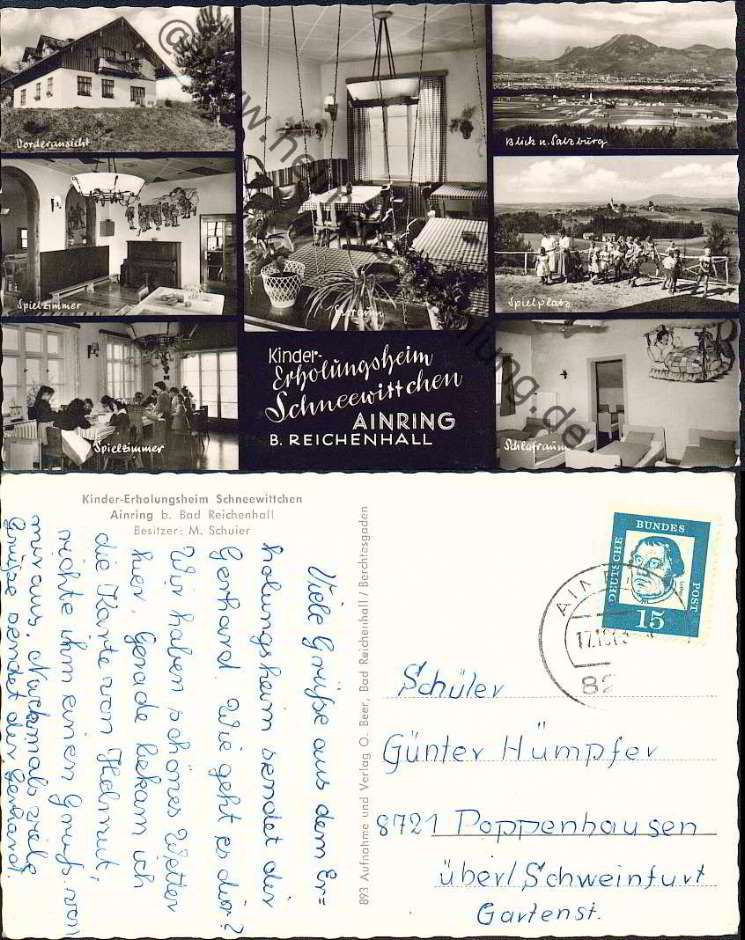 Vorderansicht
Blick n. Salzburg
Spielzimmer
Spielplatz
Spielzimmer
Schlafraum
Kinder-
Erholungsheim
Schneewittchen
AINRING
B. REICHENHALL
Kinder-Erholungsheim Schneewittchen
Ainring b. Bad Reichenhall
Besitzer: M. Schuier
Viele Grüße aus dem Er=
holungsheim sendet dir
Gerhard. Wie geht es dir?
Wir haben schönes Wetter
hier. Gerade bekam ich
die Karte von Helmut,
richte ihm einen Gruß von
mir aus. Nochmals viele
Grüße sendet der Gerhard.
893 Aufnahme und Verlag O. Beer, Bad Reichenhall / Berchtesgaden
DEUTSCHE BUNDES POST
15
AIN
82
Schüler
Günter Hümpfer
8721 Poppenhausen
über/Schweinfurt
Gartenst.